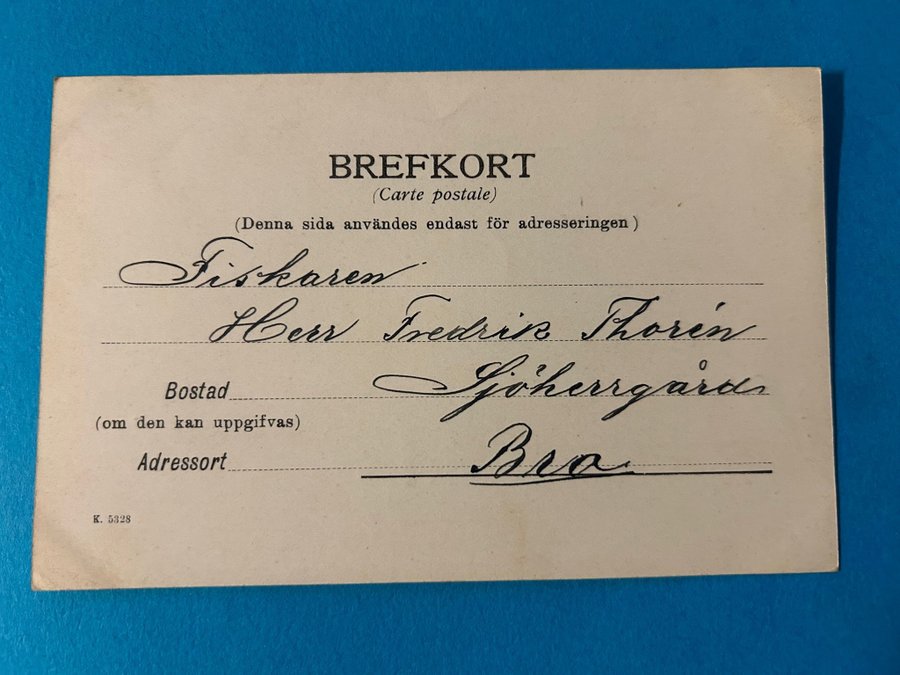 BREFKORT
(Carte postale)
(Denna sida användes endast för adresseringen)
Fiskaren
Herr Fredrik Thorén
Bostad Sjöherrgård
(om den kan uppgifvas)
Adressort Bro
K. 5328